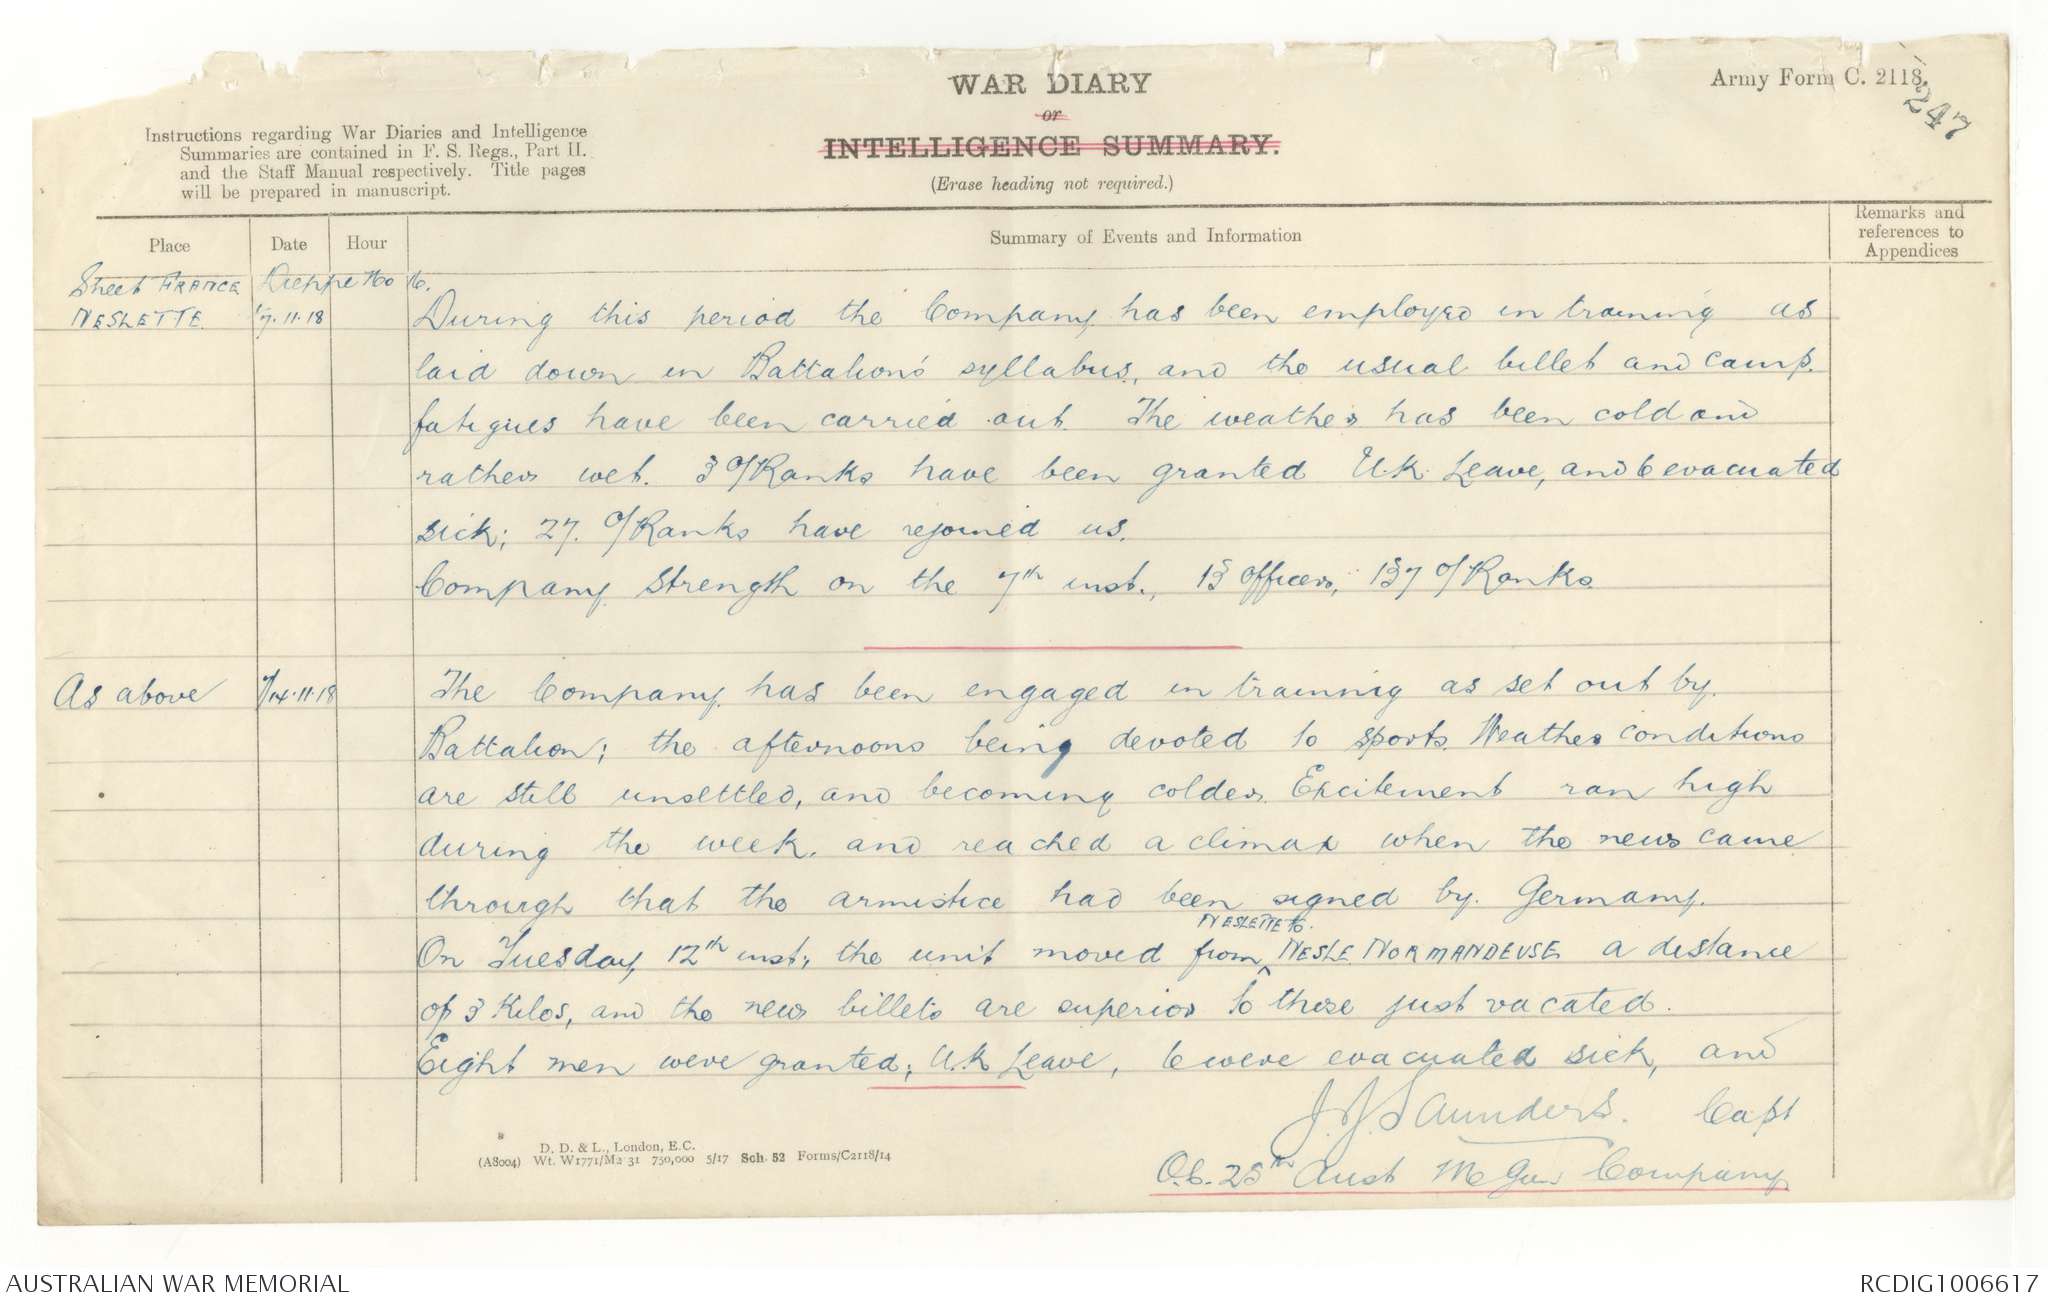 WAR DIARY
or
INTELLIGENCE SUMMARY.
(Erase heading not required.)
Army Form C. 2118.
247
Instructions regarding War Diaries and Intelligence
Summaries are contained in F. S. Regs., Part II.
and the Staff Manual respectively. Title pages
will be prepared in manuscript.
Place
Date
Hour
Summary of Events and Information
Remarks and
references to
Appendices
Sheet FRANCE Dieppe No 16.
NESLETTE. 1/7.11.18 During this period the Company has been employed in training as
laid down in Battalion's syllabus, and the usual billet and camp.
fatigues have been carried out. The weather has been cold and
rather wet. 3 O/Ranks have been granted U.K. Leave, and 6 evacuated
sick; 27. O/Ranks have rejoined us.
Company Strength on the 7th inst., 13 Officers, 137 O/Ranks.
As above 7/14.11.18 The Company has been engaged in training as set out by
Battalion; the afternoons being devoted to sports. Weather conditions
are still unsettled, and becoming colder. Excitement ran high
during the week, and reached a climax when the news came
through that the armistice had been signed by Germany.
NESLETTE to
On Tuesday, 12th inst, the unit moved from NESLE NORMANDEUSE a distance
of 3 Kilos, and the new billets are superior to those just vacated.
Eight men were granted; U.K Leave, 6 were evacuated sick, and
J.J. Saunders. Capt
O.C. 25th Aust M Gun Company
D. D. & L., London, E.C.
(A8004) Wt. W1771/M2 31 750,000 5/17 Sch. 52 Forms/C2118/14
AUSTRALIAN WAR MEMORIAL
RCDIG1006617